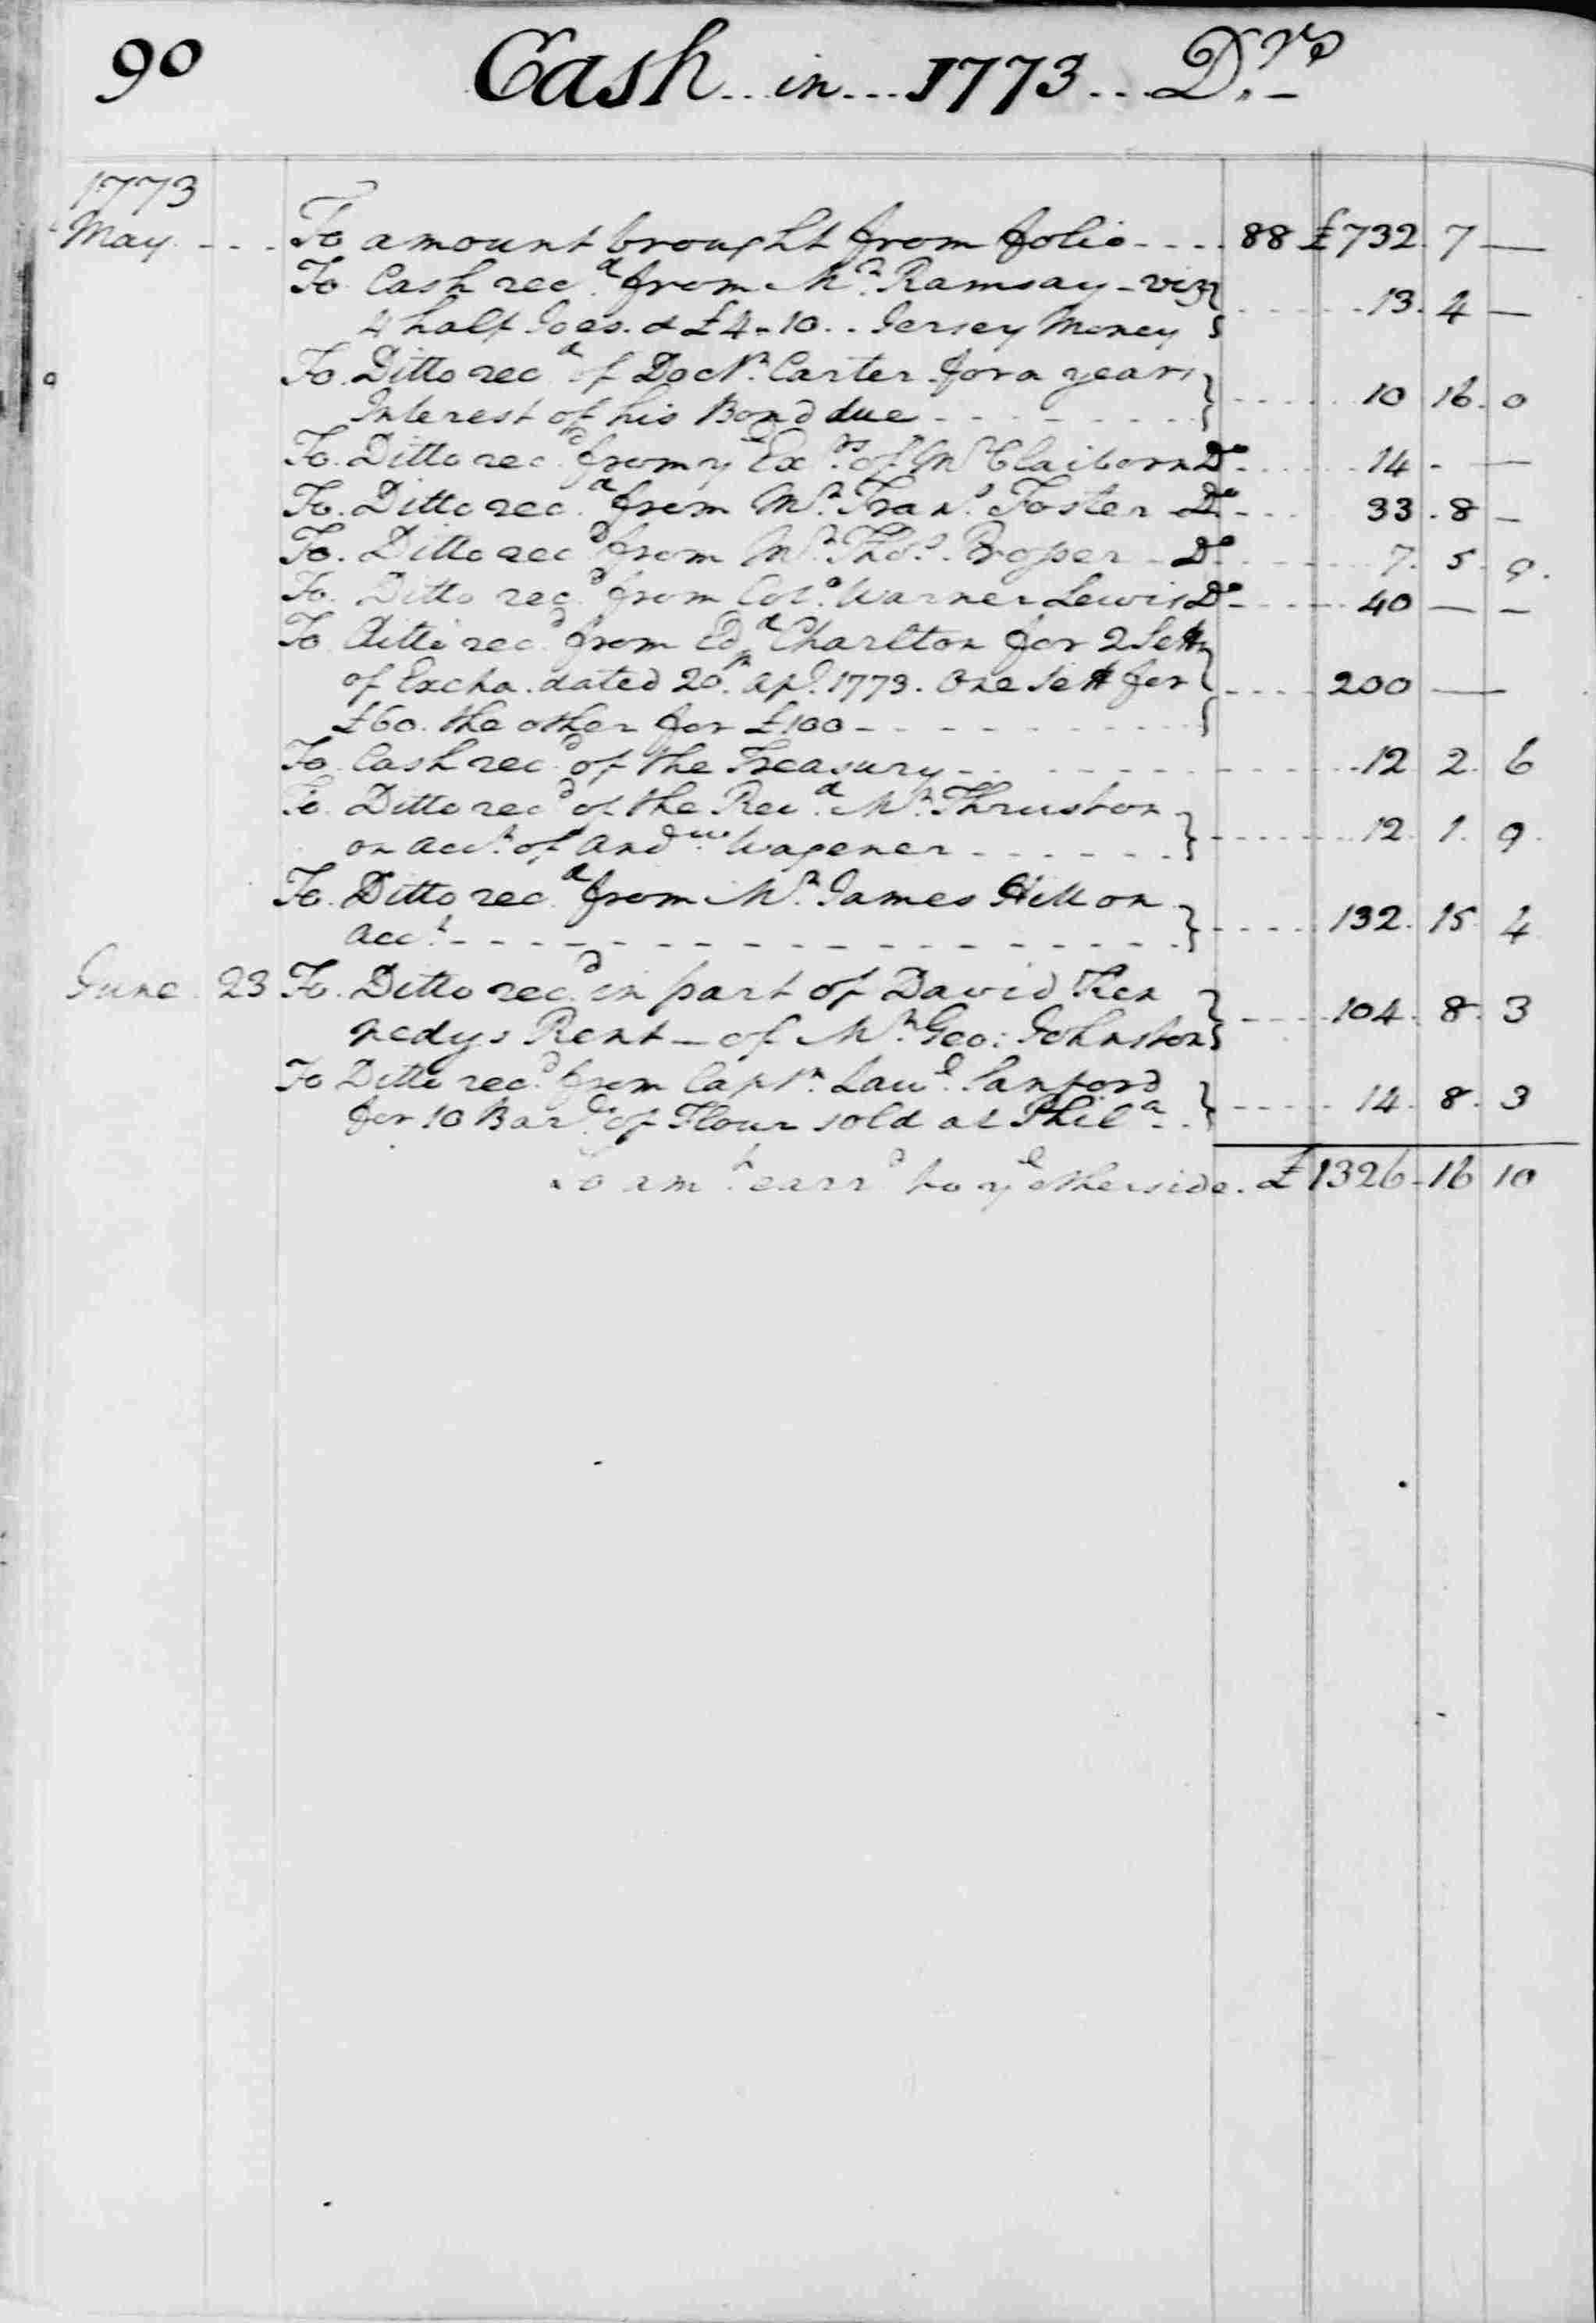 90 Cash .. in ... 1773 .. Drs
1773
May - - - To amount brought from folio - - - - 88 £732. 7 —
To Cash recd. from Mr. Ramsay - vizt
4 half Joes. & £4-10.. Jersey Money } - - - - 13. 4 —
To. Ditto recd. of Doctr. Carter for a years
Interest of his Bond due - - - - } - - - - 10 16. 0
To. Ditto recd. from ye Exrs. of Mr Claiborn Do - - - - 14 - —
To. Ditto recd. from Mr. Frans. Foster - Do - - - 33. 8 —
To. Ditto recd from Mr. Thos. Prosser - Do - - - - 7. 5. 9.
To. Ditto recd. from Colo. Warner Lewis Do - - - - 40 — —
To Ditto recd. from Edd. Charlton for 2 Setts
of Excha. dated 20th. Apl. 1773. One Sett for
£60. the other for £100 - - - - } - - - - 200 —
To. Cash recd. of the Treasury - - - - 12 2. 6
To. Ditto recd of the Revd. Mr. Thruston
on acct. of Andw. Wagener - - - - } - - - - 12. 1. 9.
To. Ditto recd. from Mr. James Hill on
acct. - - - - } - - - - 132. 15. 4
June. 23 To. Ditto recd. in part of David Ken
nedys Rent — of Mr. Geo: Johnston } - - - - 104. 8. 3
To Ditto recd. from Captn. Lawe. Sanford
for 10 Barls. of Flour sold at Phila. - } - - - - 14. 8. 3
To amt. carrd. to ye otherside. £1326-16 10